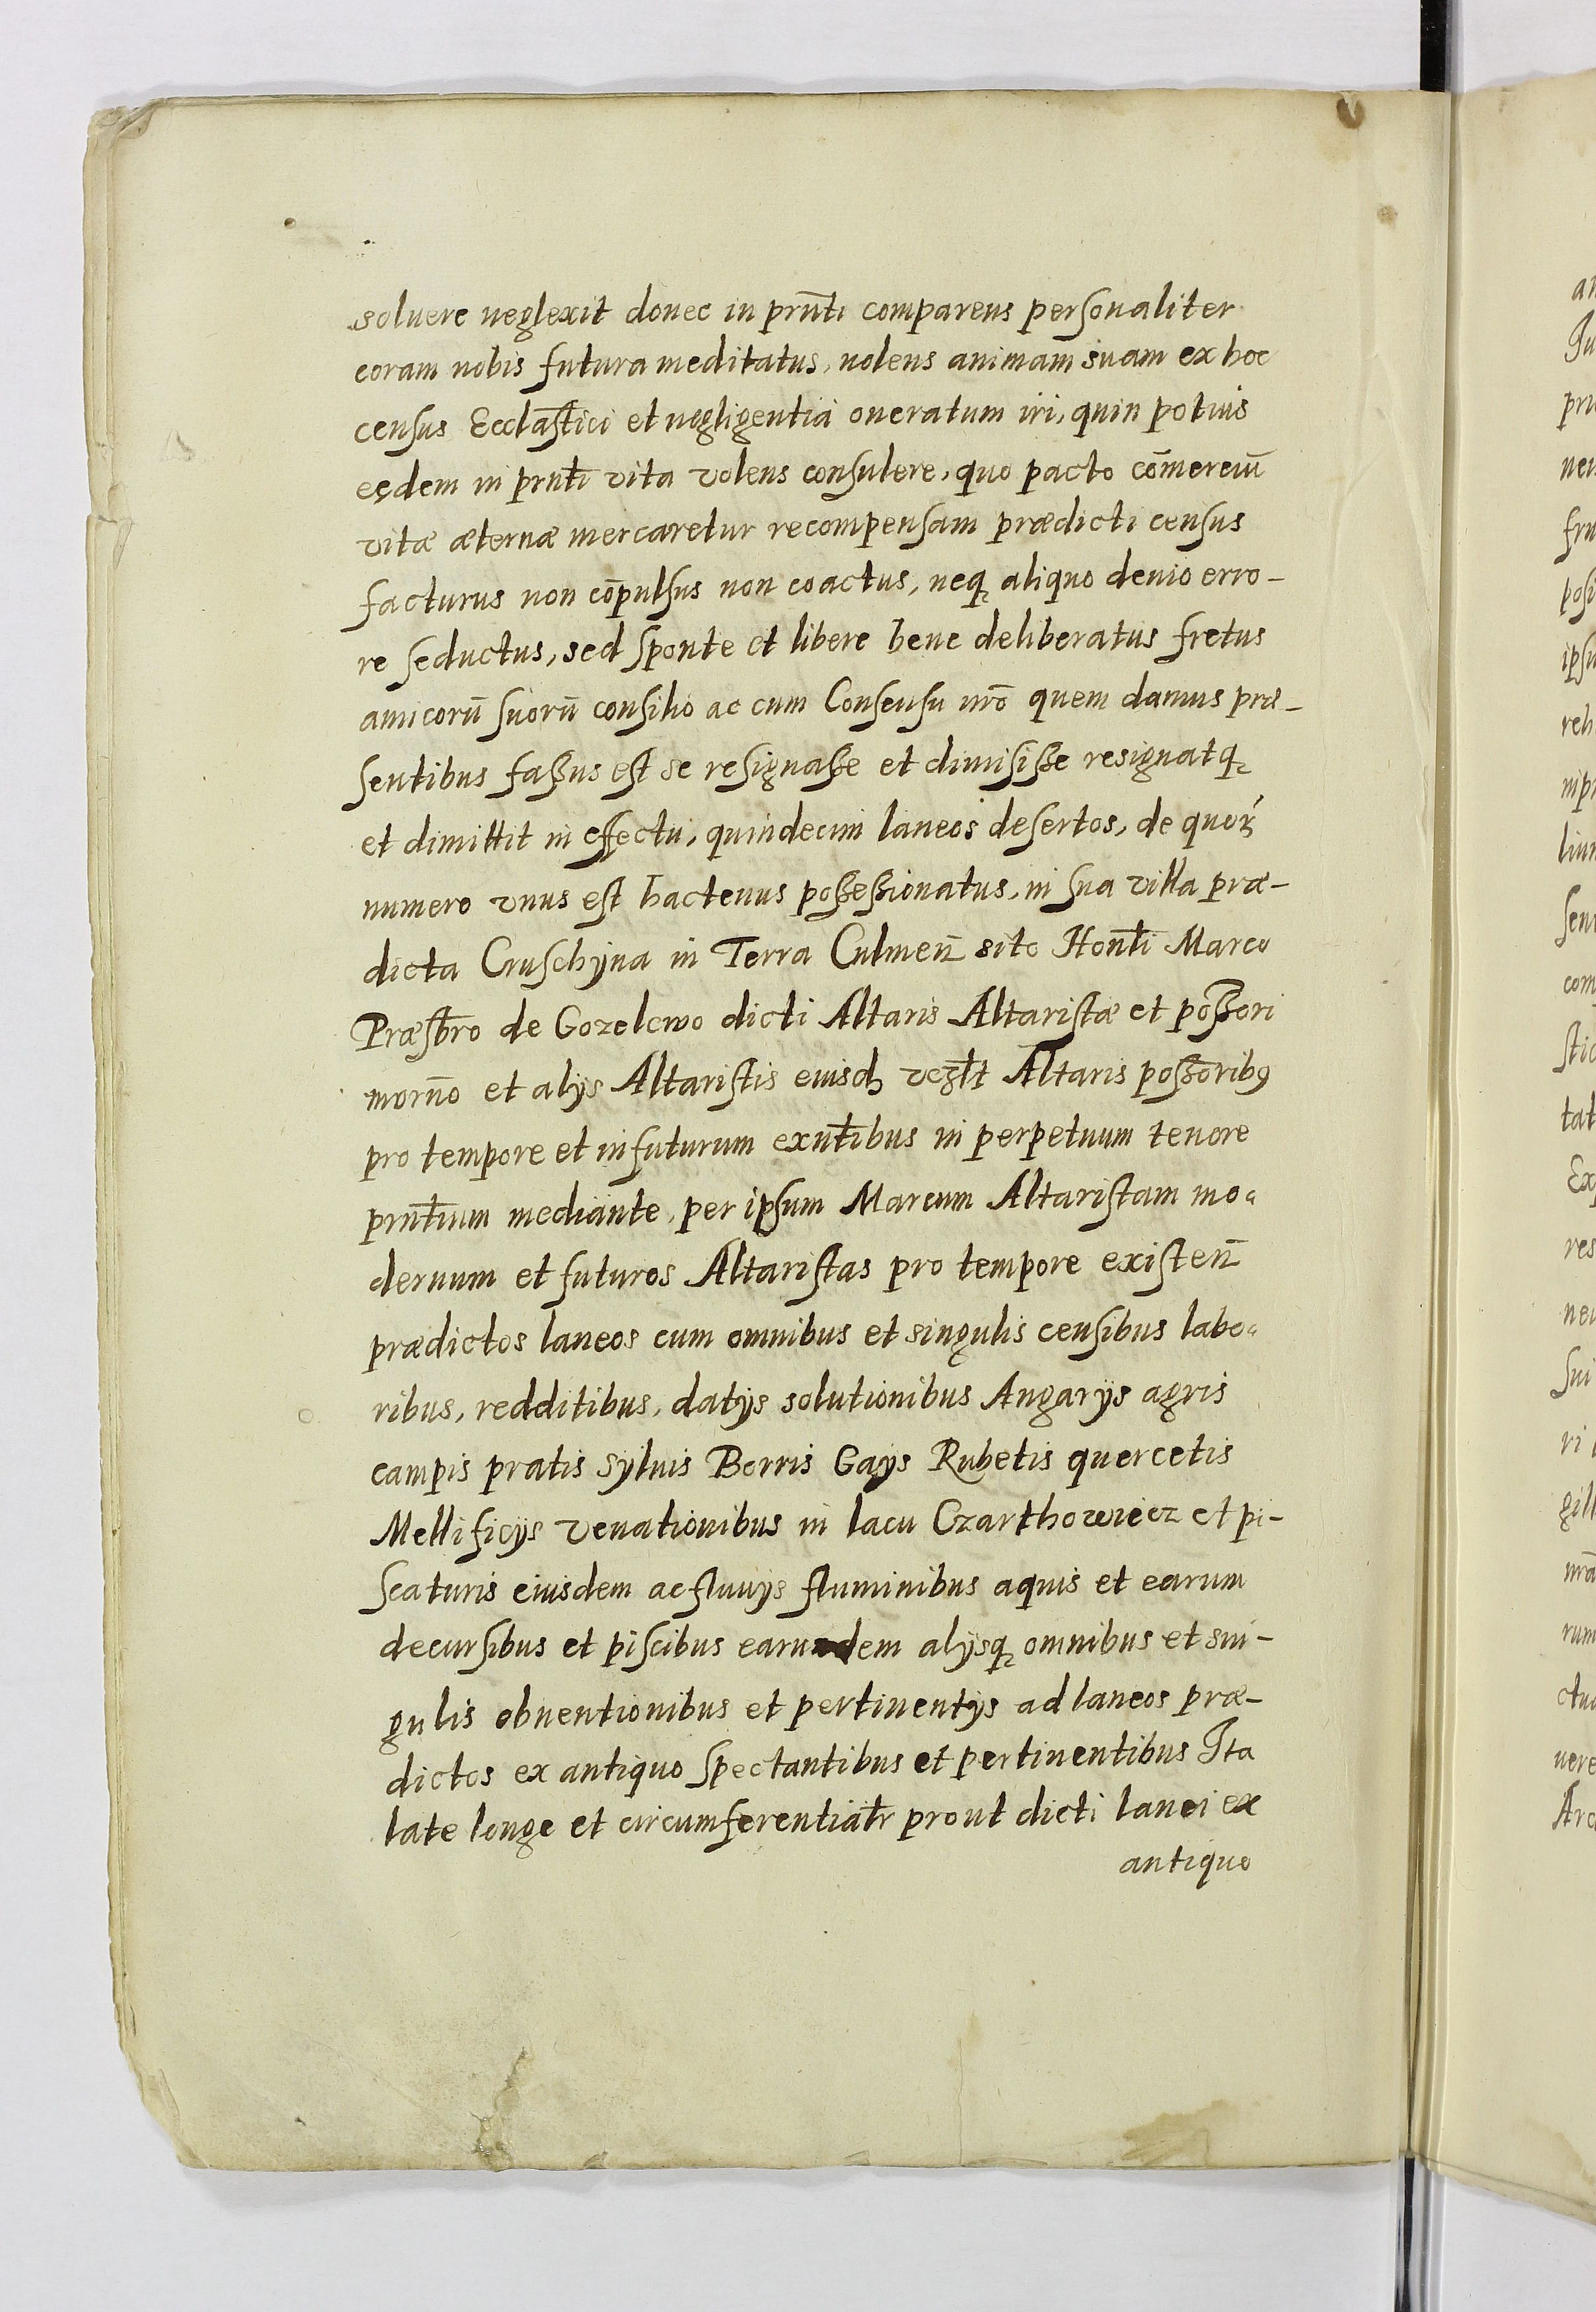 soluere neglexit donec in prn̄ti comparens personaliter
coram nobis futura meditatus, nolens animam suam ex hoc
census Eccl̄astici et negligentia oneratum iri, quin potius
eędem in prn̄ti vita volens consulere, quo pacto com̄erciū
vitæ æternæ mercaretur recompensam prædicti census
facturus non cōpulsus non coactus, neq aliquo deuio erro-
re seductus, sed sponte et libere bene deliberatus fretus
amicorū suorū consilio ac cum Consensu nr̄o quem damus præ-
sentibus faßus est se resignaße et dimisiße resignatq
et dimittit in effectu, quindecim laneos desertos, de quoꝝ
numero vnus est hactenus poßeßionatus, in sua villa præ-
dicta Cruschÿna in Terra Culmen̄ sito Hon̄ti Marco
Præsb̄ro de Gozelewo dicti Altaris Altaristæ et poß̄ori
morn̄o et alÿs Altaristis eiusdꝫ Altaris poß̄oribꝰ
pro tempore et in futurum exn̄tibus in perpetuum tenore
prn̄tium mediante, per ipsum Marcum Altaristam mo-
dernum et futuros Altaristas pro tempore existen̄
prædictos laneos cum omnibus et singulis censibus labo-
ribus, redditibus, datÿs solutionibus Angarÿs agris
campis pratis syluis Borris Gaÿs Rubetis quercetis
Mellificÿs venationibus in lacu Czarthowiecz et pi-
scaturis eiusdem ac fluuÿs fluminibus aquis et earum
decursibus et piscibus earundem alÿsq omnibus et sin-
gulis obuentionibus et pertinentÿs ad laneos præ-
dictos ex antiquo spectantibus et pertinentibus Ita
late longe et circumferentiatr̄ prout dicti lanei ex
antiquo